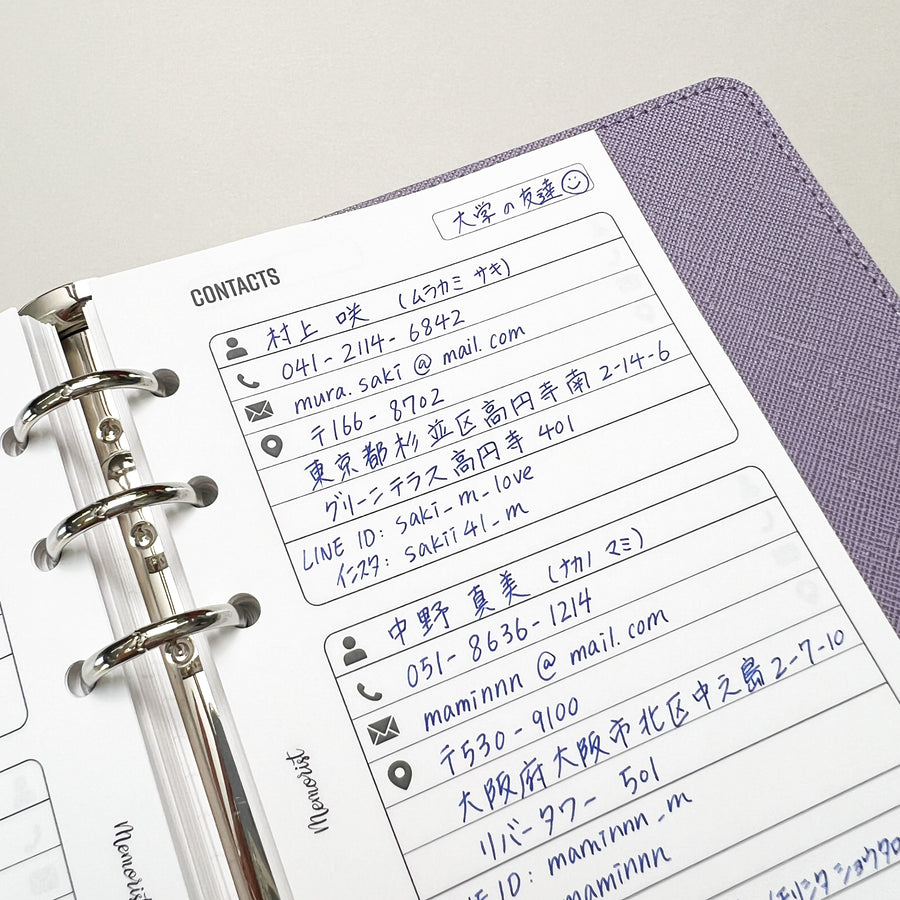 大学の友達
CONTACTS
村上 咲 (ムラカミ サキ)
041-2114-6842
mura.saki@mail.com
〒166-8702
東京都杉並区高円寺南2-14-6
グリーンテラス高円寺 401
LINE ID: saki_m_love
インスタ: sakii41_m
中野 真美 (ナカノ マミ)
051-8636-1214
maminnn@mail.com
〒530-9100
大阪府大阪市北区中之島2-7-10
リバータワー 501
ID: maminnn_m
maminnn
Memorist
Memorist